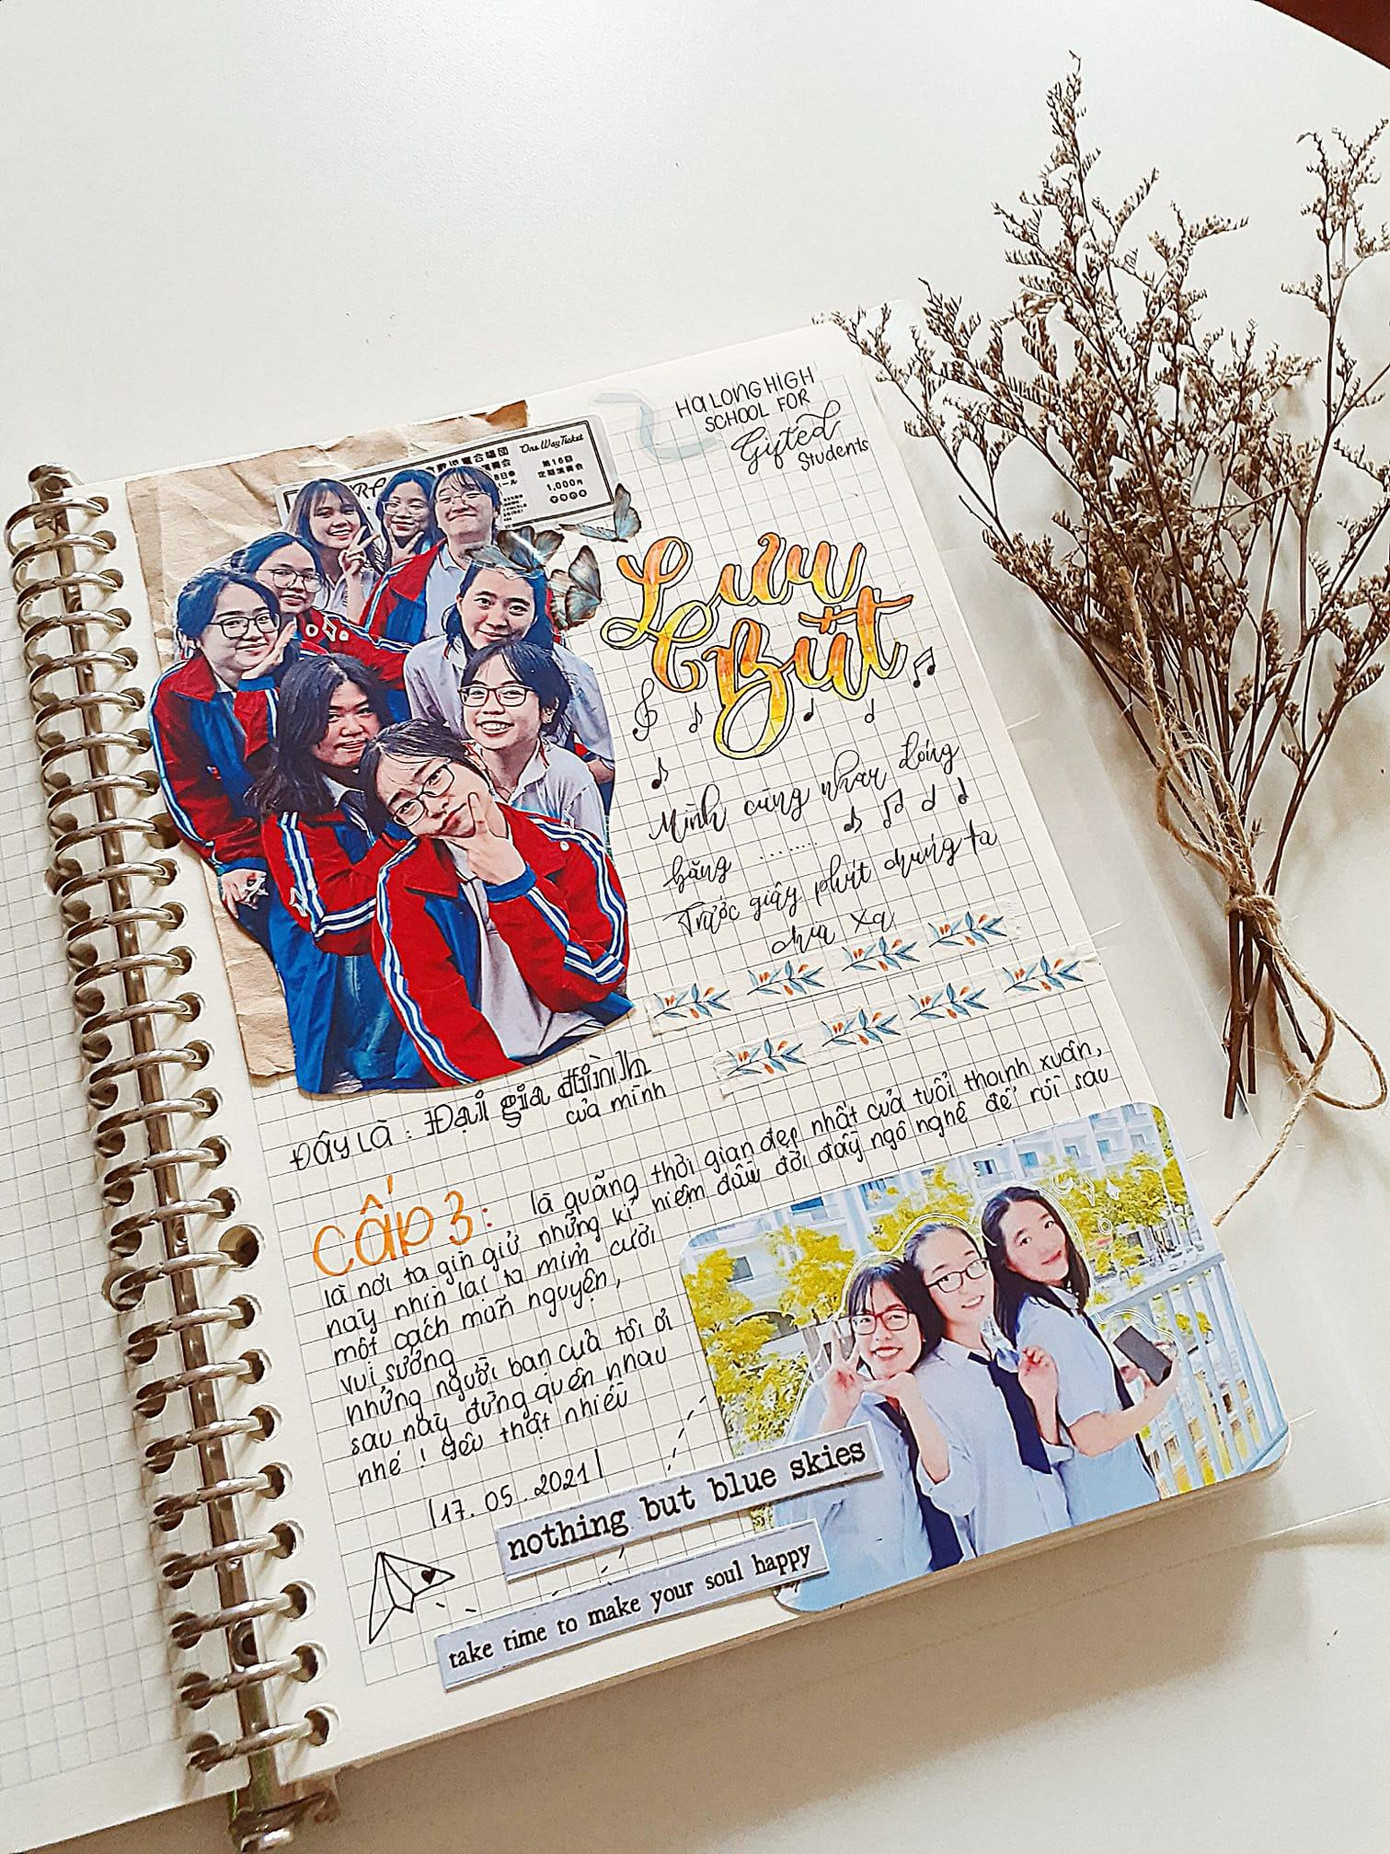 HA LONG HIGH
SCHOOL FOR
Gifted
Students
One Way Ticket
第10回
定期演奏会
1,000円
Lưu
Bút
Mình cùng nhau đóng
băng ........
Trước giây phút chúng ta
chia xa
Đây là : Đại gia đình
của mình
Cấp 3: là quãng thời gian đẹp nhất của tuổi thanh xuân,
là nơi ta gìn giữ những kỉ niệm đầu đời đầy ngô nghê để rồi sau
này nhìn lại ta mỉm cười
một cách mãn nguyện,
vui sướng
những người bạn của tôi ơi
sau này đừng quên nhau
nhé ! Yêu thật nhiều
|17.05.2021|
nothing but blue skies
take time to make your soul happy